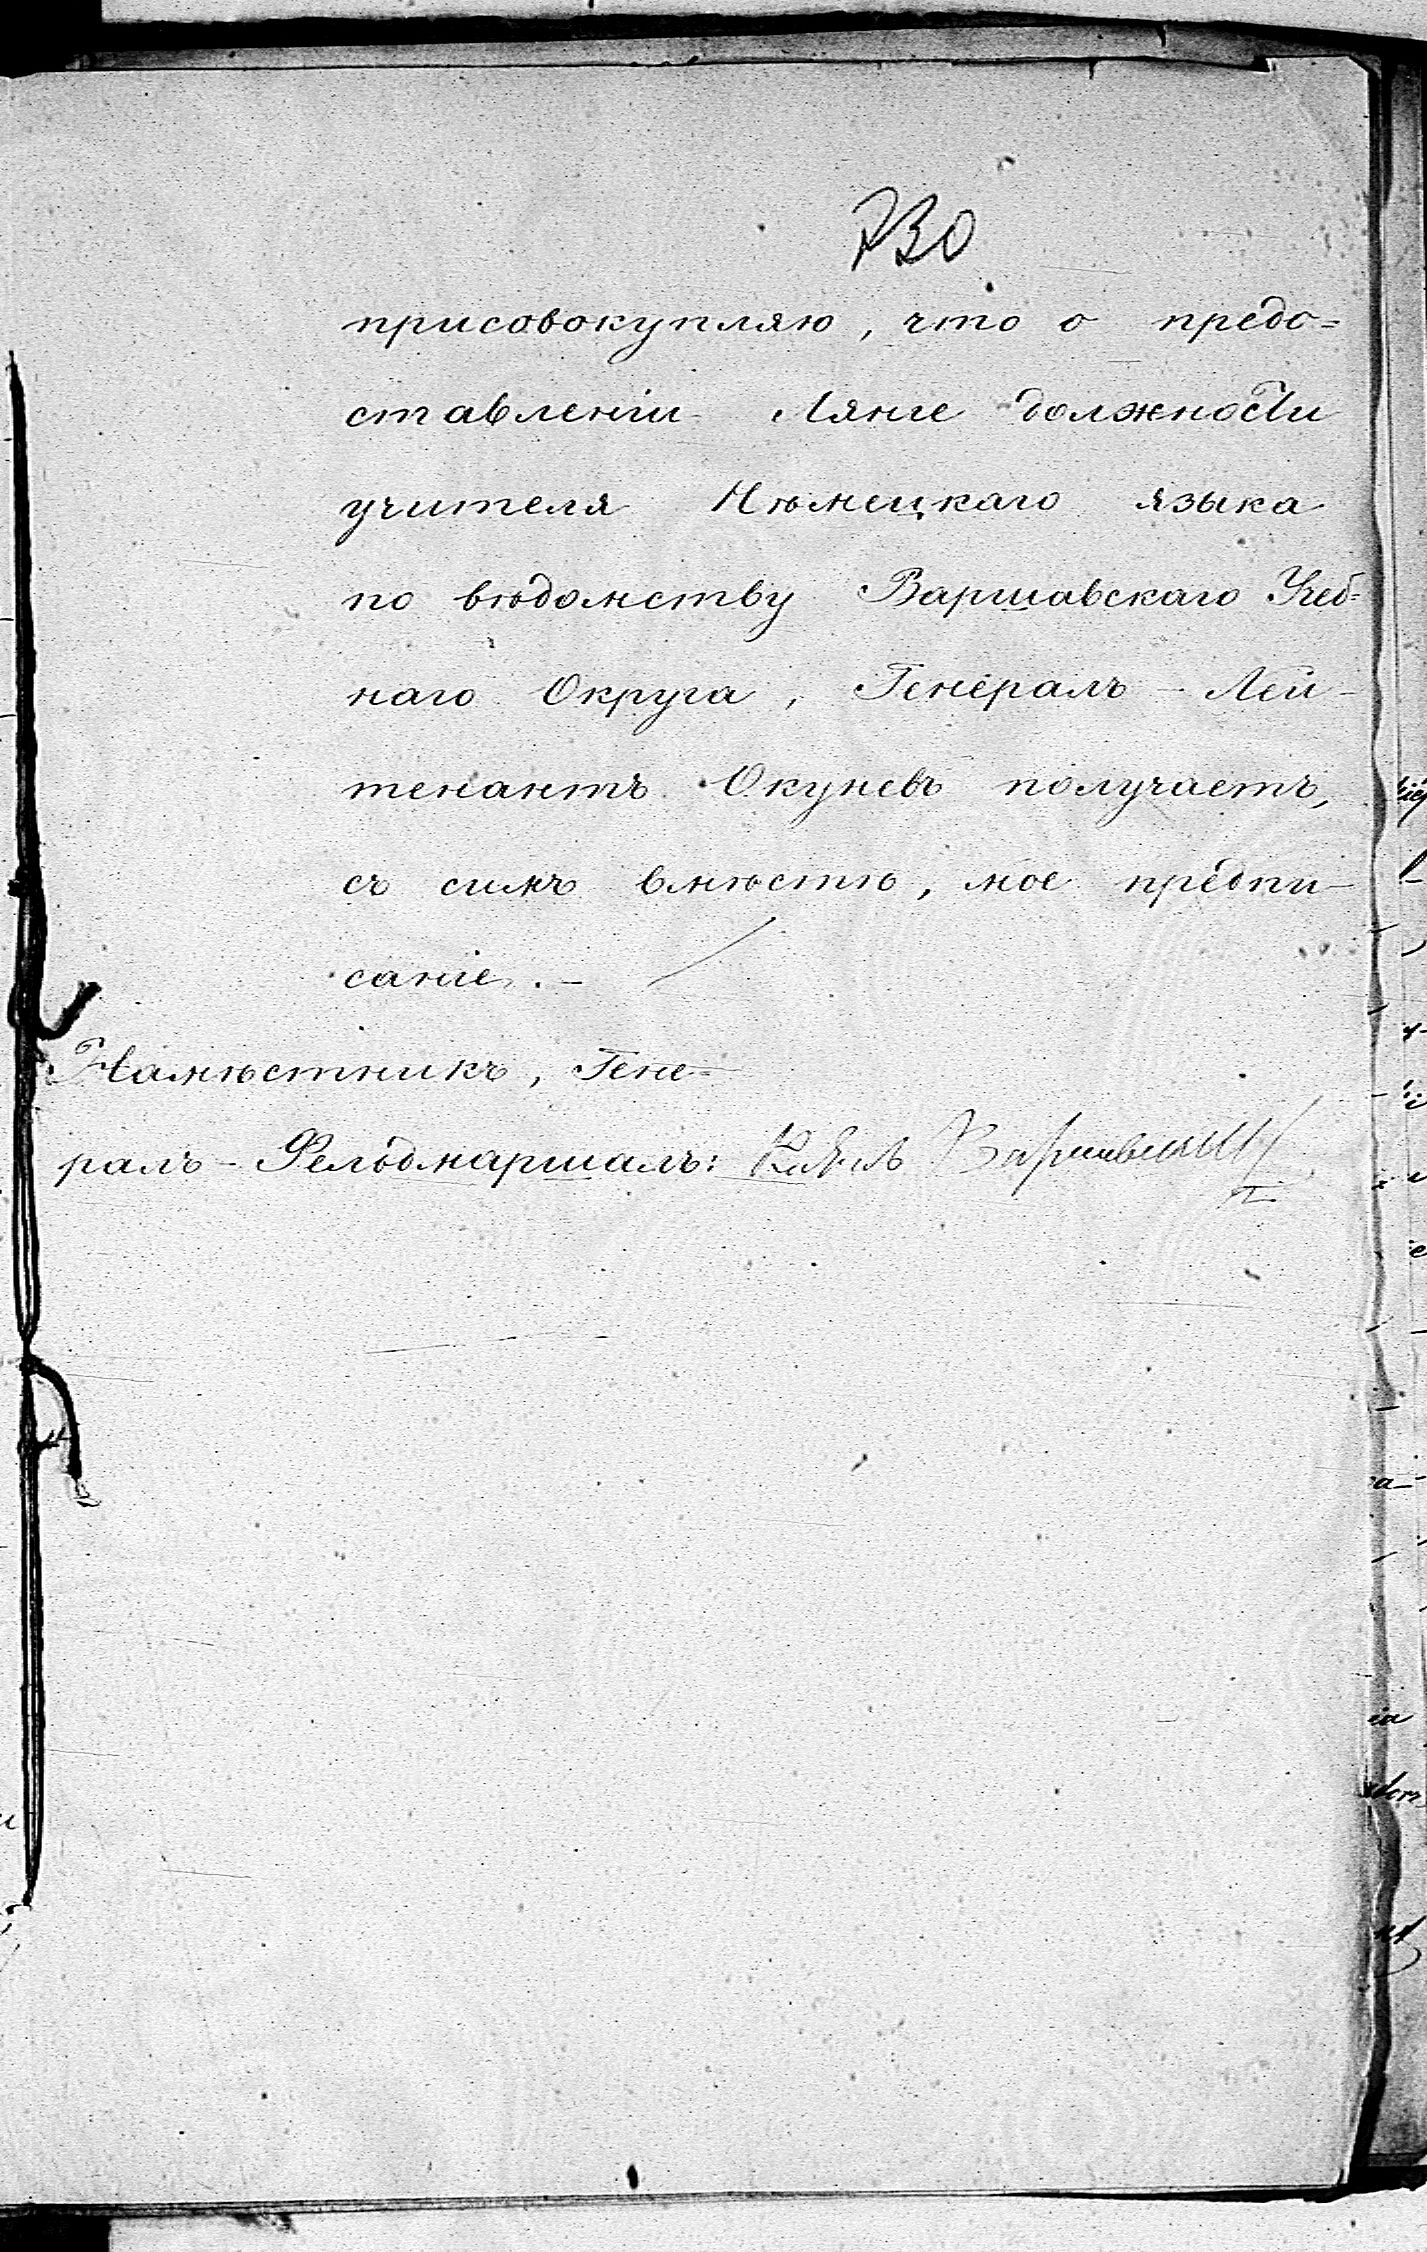 730
присовокупляю, что о предо=
ставленіи Лянге должности
учителя Нѣмецкаго языка
по вѣдомству Варшавскаго Учеб=
наго Округа, Генералъ - Лей-
тенантъ Окуневъ получаетъ,
съ симъ вмѣстѣ, мое предпи-
саніе. -
Намѣстникъ, Гене-
ралъ - Фельдмаршалъ: Князь Варшавскій